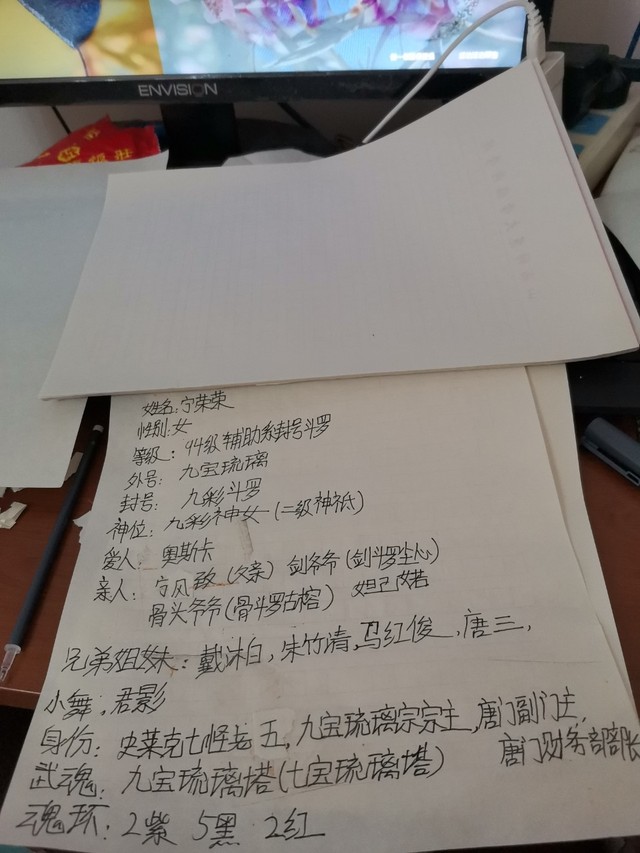 ENVISION
姓名:宁荣荣
性别:女
等级:94级辅助系封号斗罗
外号:九宝琉璃
封号:九彩斗罗
神位:九彩神女(二级神祇)
爱人:奥斯卡
亲人:宁风致(父亲) 剑爷爷(剑斗罗尘心)
骨头爷爷(骨斗罗古榕) 妲己
兄弟姐妹:戴沐白,朱竹清,马红俊,唐三,
小舞,君影
身份:史莱克七怪老五,九宝琉璃宗宗主,唐门副门主,
唐门财务部部长
武魂:九宝琉璃塔(七宝琉璃塔)
魂环:2紫 5黑 2红